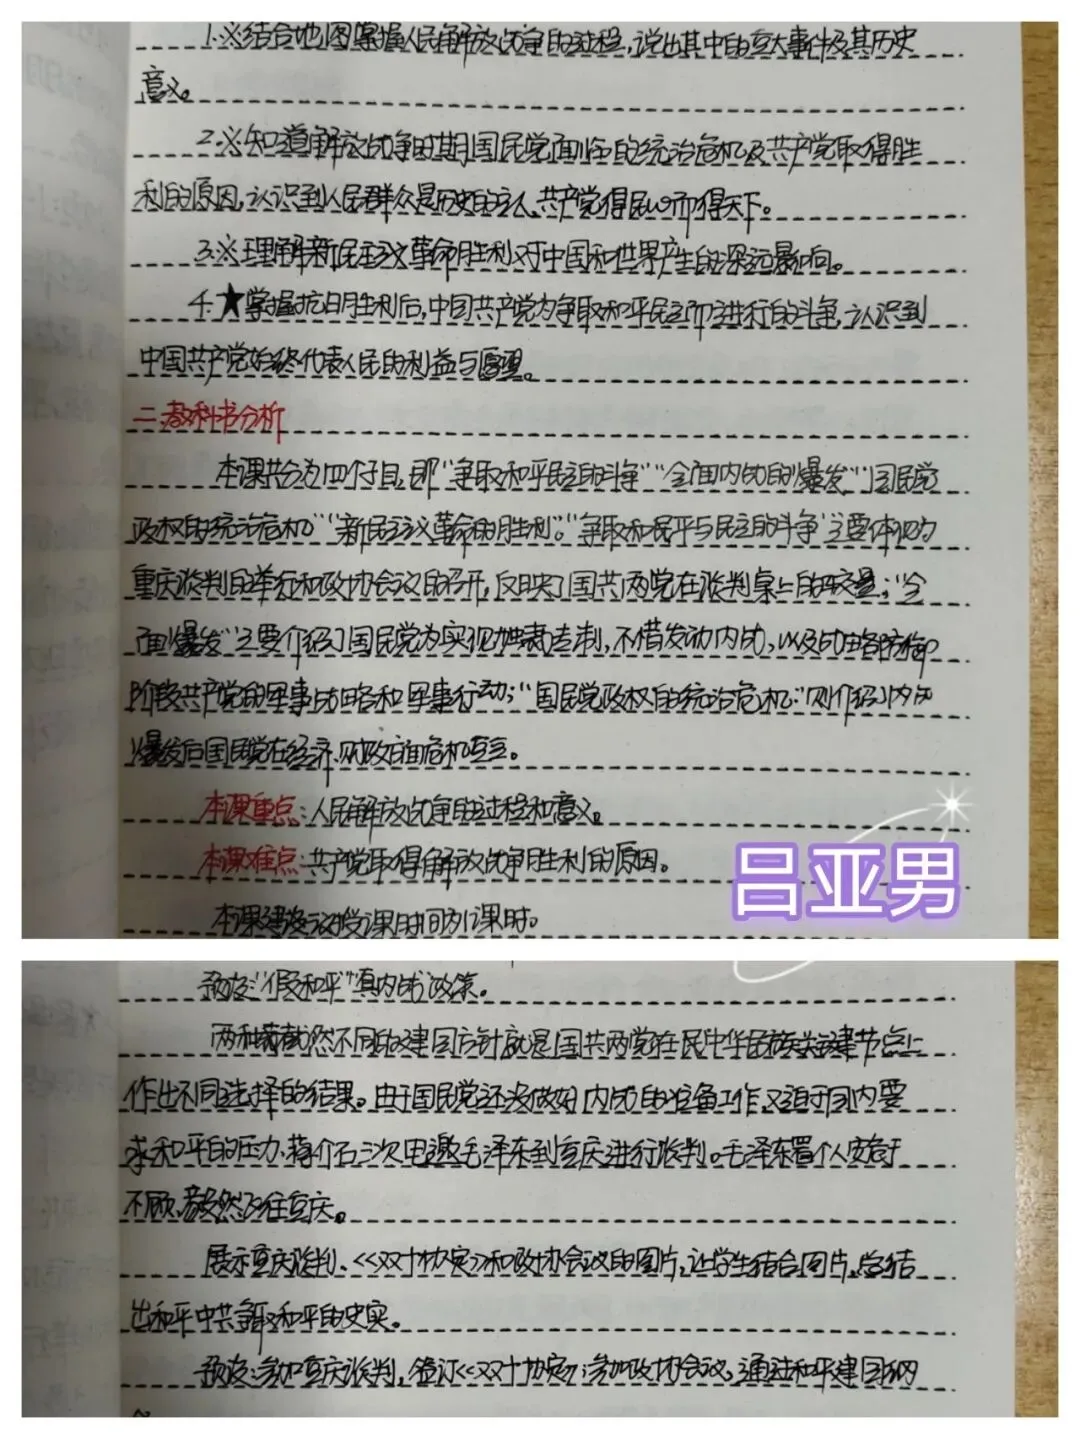 1.※结合地图掌握人民解放战争的过程,说出其中的重大事件及其历史
意义。
2.※知道解放战争时期国民党面临的统治危机及共产党取得胜
利的原因,认识到人民群众是历史的主人、共产党得民心而得天下。
3.※理解新民主主义革命胜利对中国和世界产生的深远影响。
4.★掌握抗日胜利后,中国共产党为争取和平民主而进行的斗争,认识到
中国共产党始终代表人民的利益与愿望。
二.教科书分析
本课共分为四个子目,即“争取和平民主的斗争”“全面内战的爆发”“国民党
政权的统治危机”“新民主主义革命的胜利”。“争取和平与民主的斗争”主要体现为
重庆谈判的举行和政协会议的召开,反映了国共两党在谈判桌上的较量;“全
面爆发”主要介绍了国民党为实现独裁专制,不惜发动内战,以及战略防御
阶段共产党的军事战略和军事行动;“国民党政权的统治危机”则介绍了内战
爆发后国民党在经济、财政方面危机重重。
本课重点:人民解放战争的过程和意义。
本课难点:共产党取得解放战争胜利的原因。
本课建议授课时间为1课时。
吕亚男
预设:“假和平”真内战政策。
两种截然不同的建国方针就是国共两党在民中华民族关键节点上
作出不同选择的结果。由于国民党还没做好内战的准备工作,又迫于国内要
求和平的压力,蒋介石三次电邀毛泽东到重庆进行谈判。毛泽东置个人安危于
不顾,毅然飞往重庆。
展示重庆谈判、《双十协定》和政协会议的图片,让学生结合图片,总结
出和平中共争取和平的史实。
预设:参加重庆谈判,签订《双十协定》;参加政协会议,通过和平建国纲